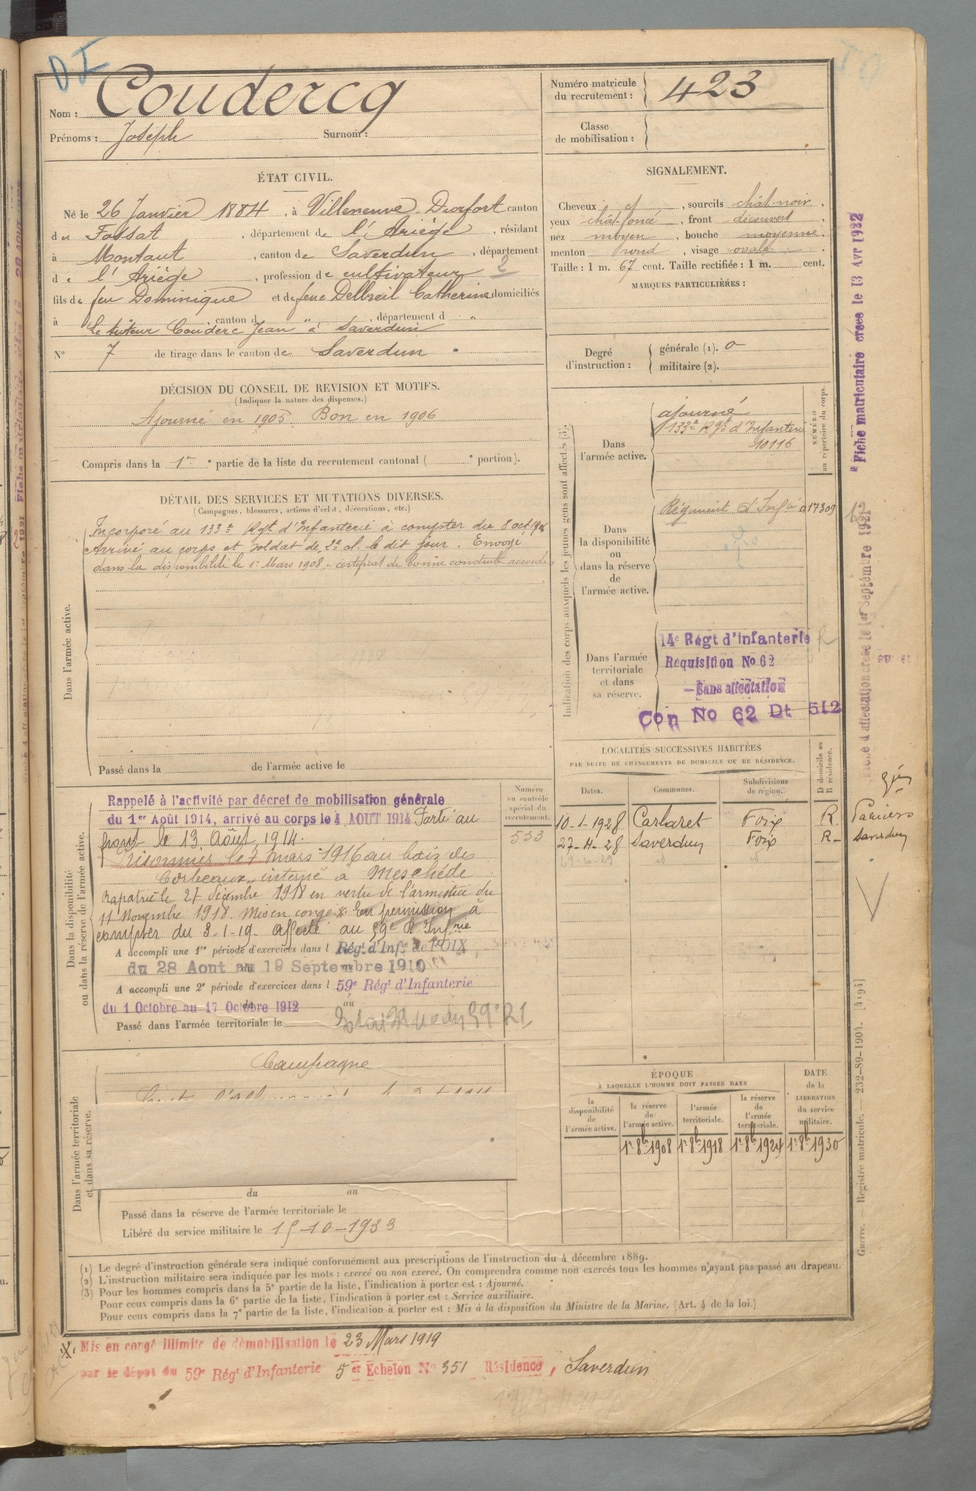 DI
Nom : Coudercq
Prénoms : Joseph Surnom :
Numéro matricule du recrutement : 423
Classe de mobilisation :
ÉTAT CIVIL.
Né le 26 Janvier 1884, à Villeneuve Durfort canton
du Fossat, département de l'Ariège, résidant
à Montaut, canton de Saverdun, département
de l'Ariège, profession de cultivateur
fils de feu Dominique et de feue Delbreil Catherine domiciliés
à canton d , département d
Le tuteur Couderc Jean " à Saverdun
N° 7 de tirage dans le canton de Saverdun
SIGNALEMENT.
Cheveux et , sourcils chât-noir,
yeux chât-foncé, front découvert,
nez moyen, bouche moyenne,
menton rond, visage ovale.
Taille : 1 m. 67 cent. Taille rectifiée : 1 m. cent.
MARQUES PARTICULIÈRES :
Degré d'instruction : générale (1). 0
militaire (2).
DÉCISION DU CONSEIL DE REVISION ET MOTIFS.
(Indiquer la nature des dispenses.)
Ajourné en 1905 Bon en 1906
Compris dans la 1re partie de la liste du recrutement cantonal ( portion).
DÉTAIL DES SERVICES ET MUTATIONS DIVERSES.
(Campagnes, blessures, actions d'éclat, décorations, etc.)
Dans l'armée active.
Incorporé au 133e Rgt d'Infanterie à compter du 8 oct 1906
Arrivé au corps et soldat de 2e cl. le dit jour. Envoyé
dans la disponibilité le 1er Mars 1908. certificat de bonne conduite accordé
Passé dans la de l'armée active le
Indication des corps auxquels les jeunes gens sont affectés (3).
NUMÉRO au répertoire du corps.
Dans l'armée active.
ajourné
133e Rgt d'Infanterie
10116
Dans la disponibilité ou dans la réserve de l'armée active.
Régiment d'Infie 017309
Dans l'armée territoriale et dans sa réserve.
14e Régt d'infanterie
Requisition No 62
Sans affectation
Con No 62 Dt 512
LOCALITÉS SUCCESSIVES HABITÉES
PAR SUITE DE CHANGEMENTS DE DOMICILE OU DE RÉSIDENCE.
Dates. Communes. Subdivisions de région. D domicile ou R résidence.
10-1-1928 Carlaret Foix R Pamiers
27-11-28 Saverdun Foix R- Saverdun
Dans la disponibilité ou dans la réserve de l'armée active.
Numéro au contrôle spécial du recrutement.
533
Rappelé à l'activité par décret de mobilisation générale
du 1er Août 1914, arrivé au corps le 4 AOUT 1914 Parti au
front le 13 Août 1914.
Prisonnier le 7 mars 1916 au bois des
Corbeaux interné à Meschede
rapatrié le 27 décembre 1918 en vertu de l'armistice du
11 Novembre 1918. Mis en congé en permission à
compter du 3-1-19. Affecté au 59e R Infrie
A accompli une 1re période d'exercices dans l Régt d'Infie de FOIX
du 28 Aout au 19 Septembre 1910
A accompli une 2e période d'exercices dans l 59e Régt d'Infanterie
du 1 Octobre au 17 Octobre 1912
Passé dans l'armée territoriale le
Dans l'armée territoriale et dans sa réserve.
Campagne
du au
Passé dans la réserve de l'armée territoriale le
Libéré du service militaire le 15-10-1933
ÉPOQUE
À LAQUELLE L'HOMME DOIT PASSER DANS
la disponibilité de l'armée active. la réserve de l'armée active. l'armée territoriale. la réserve de l'armée territoriale. DATE de la LIBÉRATION du service militaire.
1er 8bre 1908 1er 8bre 1918 1er 8bre 1924 1er 8bre 1930
(1) Le degré d'instruction générale sera indiqué conformément aux prescriptions de l'instruction du 4 décembre 1889.
(2) L'instruction militaire sera indiquée par les mots : exercé ou non exercé. On comprendra comme non exercés tous les hommes n'ayant pas passé au drapeau.
(3) Pour les hommes compris dans la 5e partie de la liste, l'indication à porter est : Ajourné.
Pour ceux compris dans la 6e partie de la liste, l'indication à porter est : Service auxiliaire.
Pour ceux compris dans la 7e partie de la liste, l'indication à porter est : Mis à la disposition du Ministre de la Marine. (Art. 4 de la loi.)
Mis en congé illimité de démobilisation le 23 Mars 1919
par le dépôt du 59e Régt d'Infanterie 5 et Echelon No 351 Résidence, Saverdun
Fiche matriculaire créée le 13 Avr 1922
Fiche d'affectation créée le 1er Septembre 1921
Guerre. — Registre matricule. — 232-89-1904. [4494]